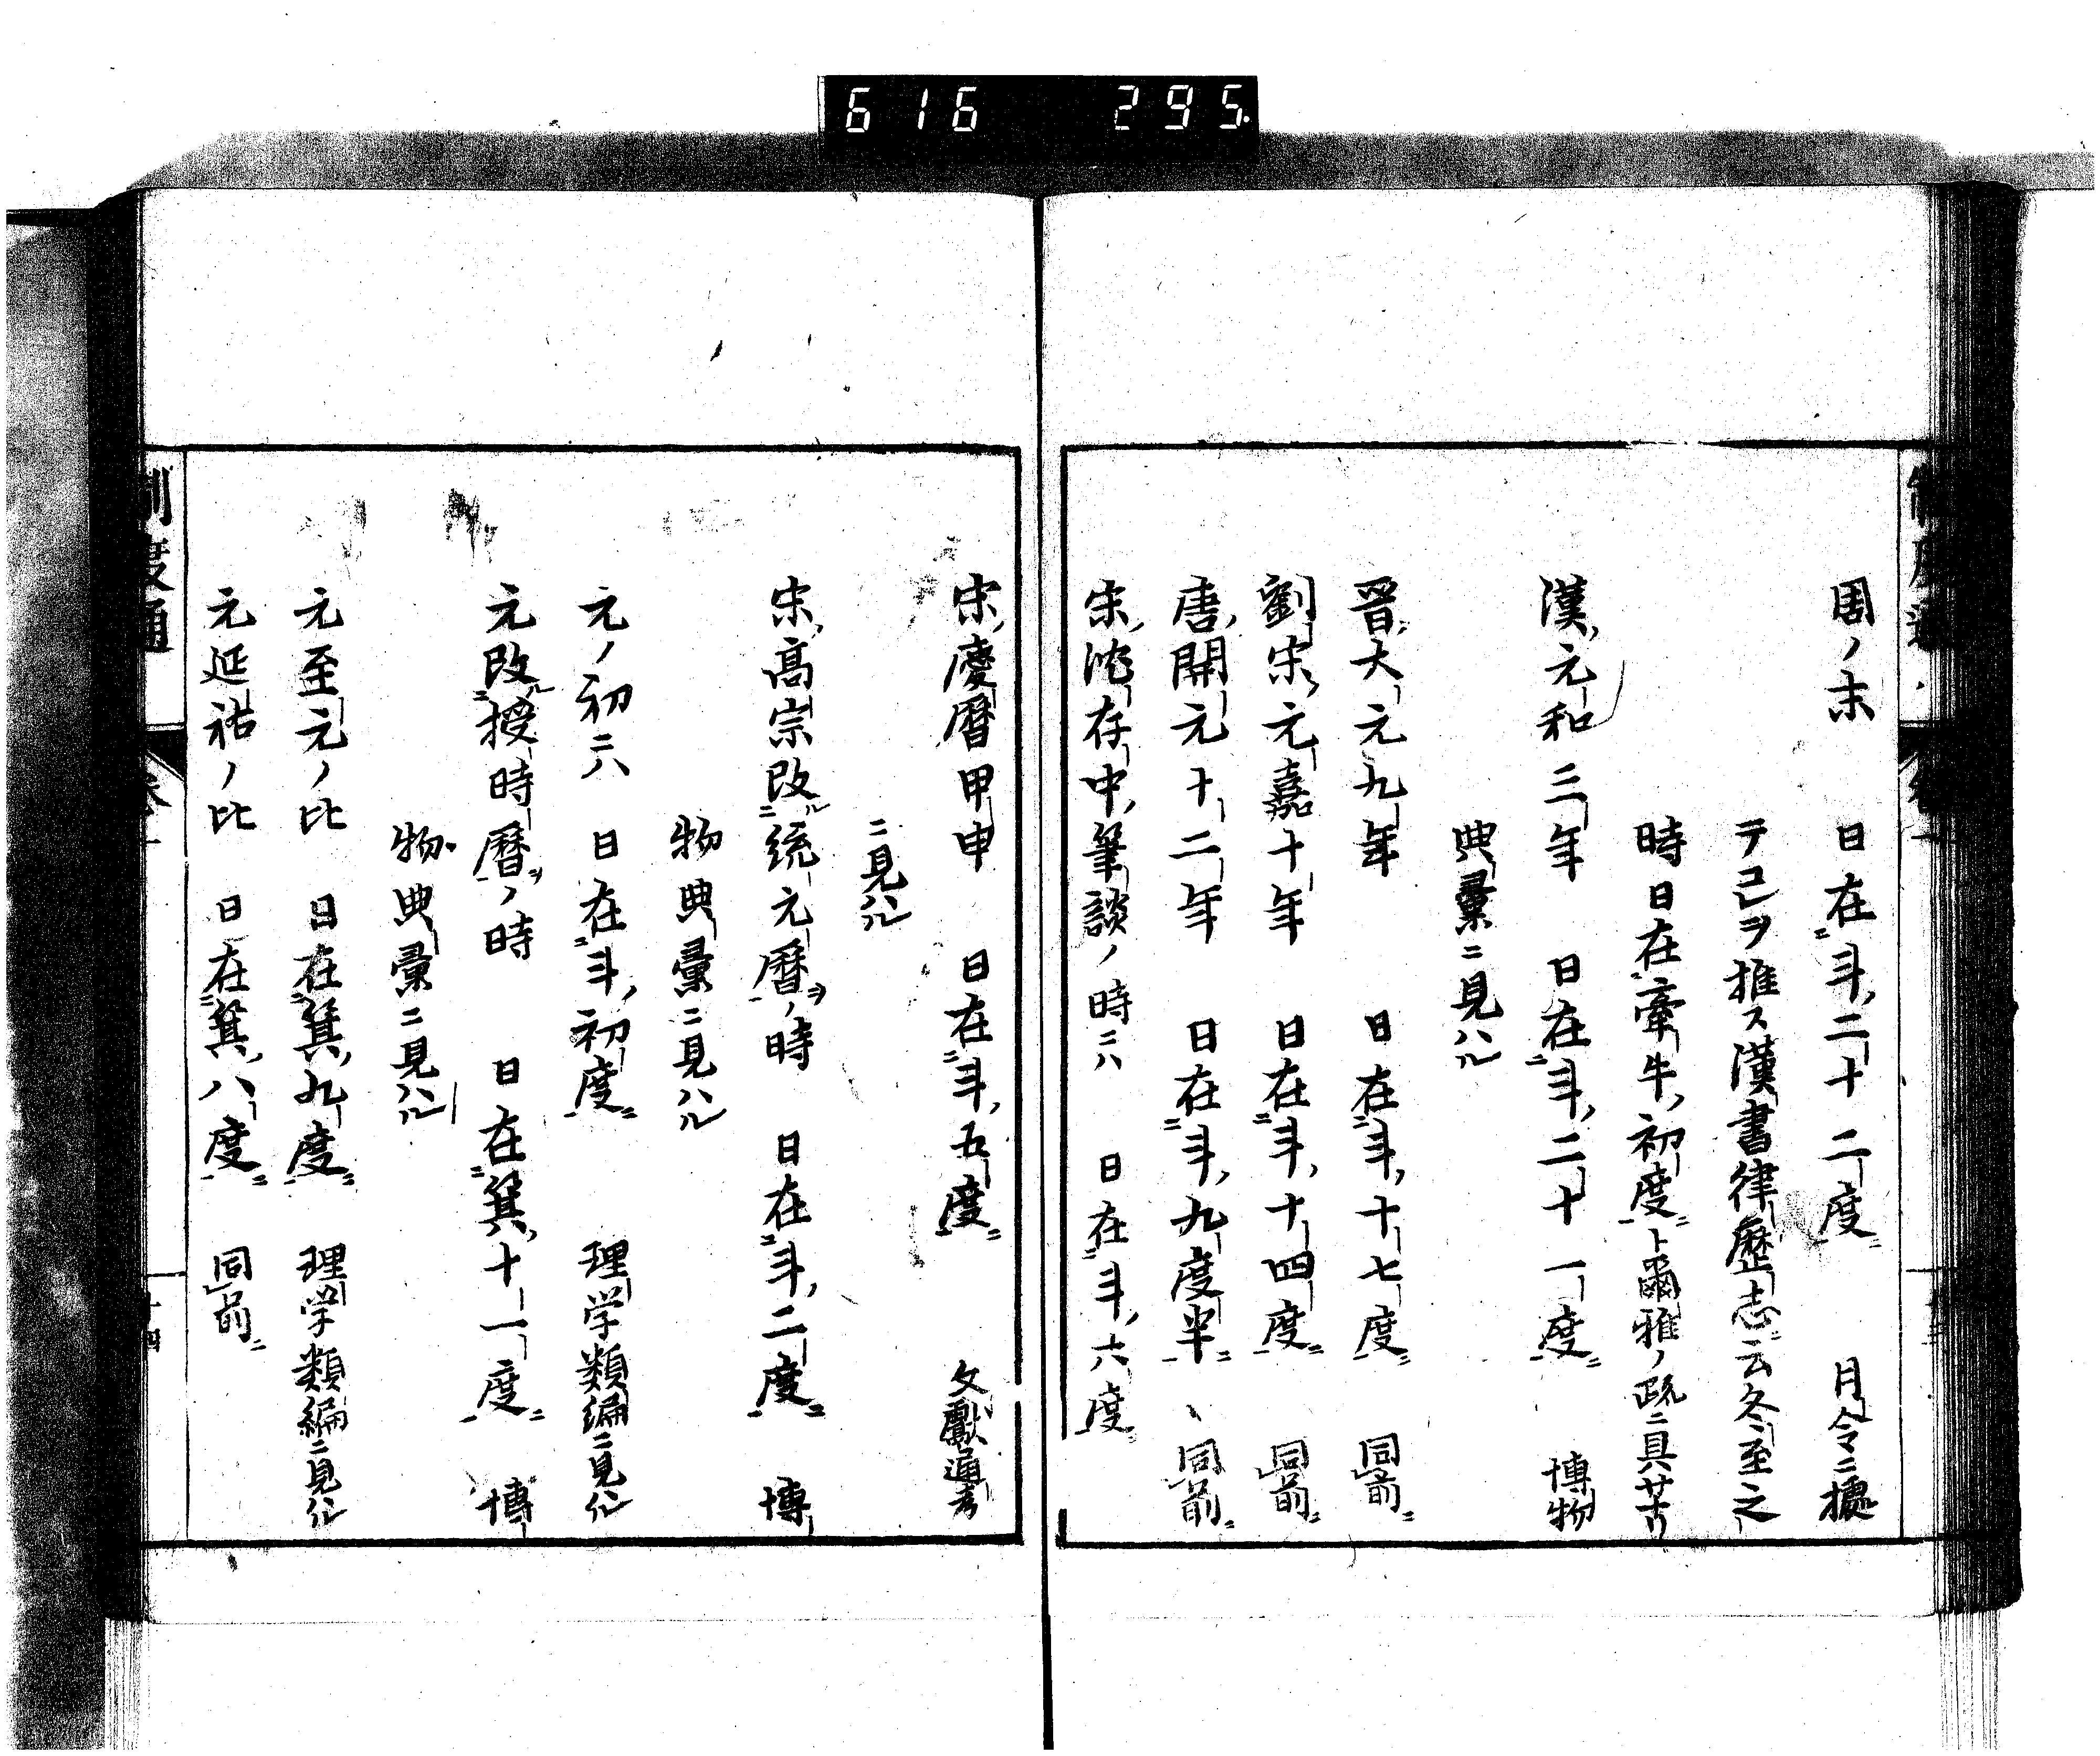 616 295.
周ノ末 日在斗二十二度 月令ニ據
テコレヲ推ス漢書律歴志ニ云冬至之
時日在牽牛初度ト爾雅ノ疏ニ具サ
漢元和三年 日在斗二十一度 博物
典彙ニ見ハル
晋大元九年 日在斗十七度 同前
劉宋元嘉十年 日在斗十四度 同前
唐開元十二年 日在斗九度半 同前
宋沈存中筆談ノ時ニハ 日在斗六度
宋慶暦甲申 日在斗五度 文獻通考
ニ見ハル
宋高宗改統元暦ノ時 日在斗二度 博
物典彙ニ見ハル
元ノ初ニハ 日在斗初度 理学類編ニ見ハル
元改授時暦ノ時 日在箕十一度 博
物典彙ニ見ハル
元至元ノ比 日在箕九度 理学類編ニ見ハル
元延祐ノ比 日在箕八度 同前
制度通